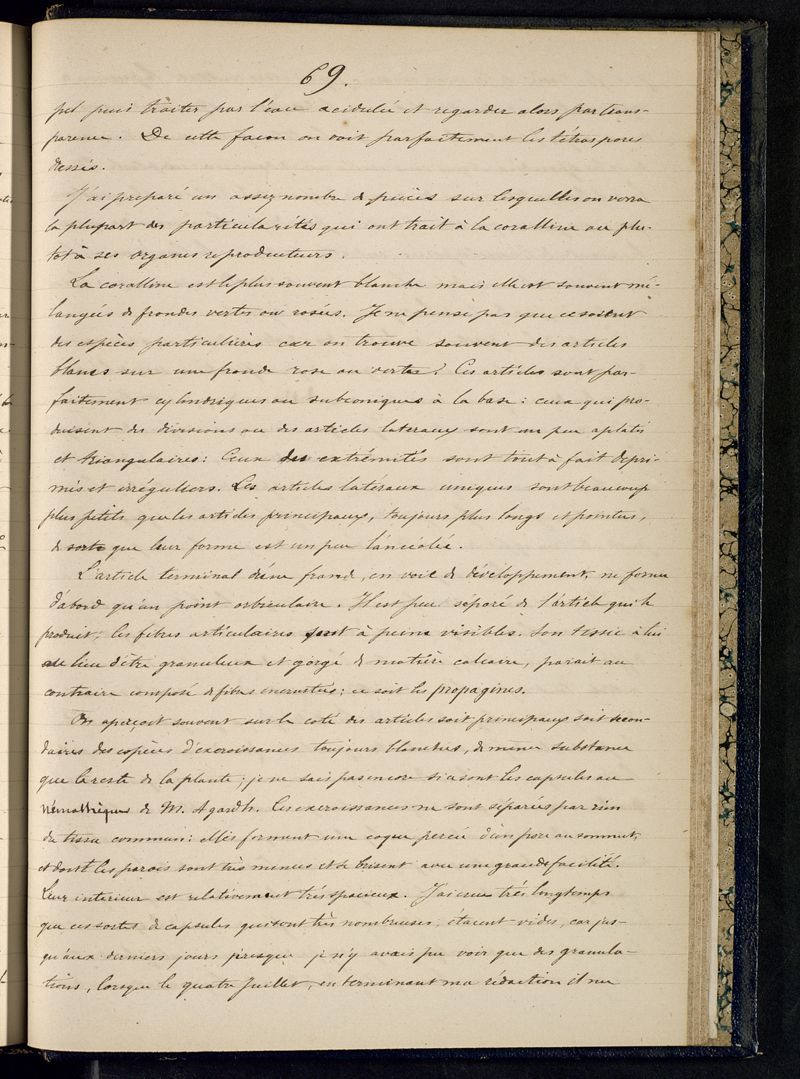 69.
pel puis traiter par l'eau acidulée et regarder alors par trans-
parence. De cette facon on voit parfaitement les tétraspores
dessés.
J'ai préparé un assez nombre de pièces sur lesquelles on verra
la plupart des particularités qui ont trait à la coralline ou plu-
tot à ses organes reproducteurs.
La coralline est le plus souvent blanche mais elle est souvent mé-
langées de frondes vertes ou rosées. Je ne pense pas que ce soient
des espèces particulières car on trouve souvent des articles
blancs sur une fronde rose ou verte. Ces articles sont par-
faitement cylindriques ou subconiques à la base : ceux qui pro-
duisent des divisions ou des articles lateraux sont un peu aplatis
et triangulaires : Ceux des extrémités sont tout à fait dépri-
més et irréguliers. Les articles latéraux uniques sont beaucoup
plus petits que les articles principaux, toujours plus longs et pointus,
de sorte que leur forme est un peu lancéolée.
L'article terminal d'une frond, en voie de développement, ne forme
d'abord qu'un point orbiculaire. Il est peu séparé de l'article qui le
produit; les fibres articulaires sont à peine visibles. Son tissu à lui
au lieu d'être granuleux et gorgé de matière calcaire, parait au
contraire composé de fibres incrustées; ce sont les propagines.
On aperçoit souvent sur le coté des articles soit principaux soit secon-
daires des espèces d'excroissances toujours blanches, de même substance
que le reste de la plante; je ne sais pas encore si ce sont les capsules ou
Némathèques de M. Agardh. Ces excroissances ne sont séparées par rien
du tissu commun : elles forment une coque percée d'un pore au sommet,
et dont les parois sont très menues et se brisent avec une grande facilité.
Leur interieur est relativement très spacieux. J'ai cru très longtemps
que ces sortes de capsules qui sont très nombreuses, étaient vides, car jus-
qu'aux derniers jours presque je n'y avais pu voir que des granula-
tions, lorsque le quatre Juillet, en terminant ma rédaction il me